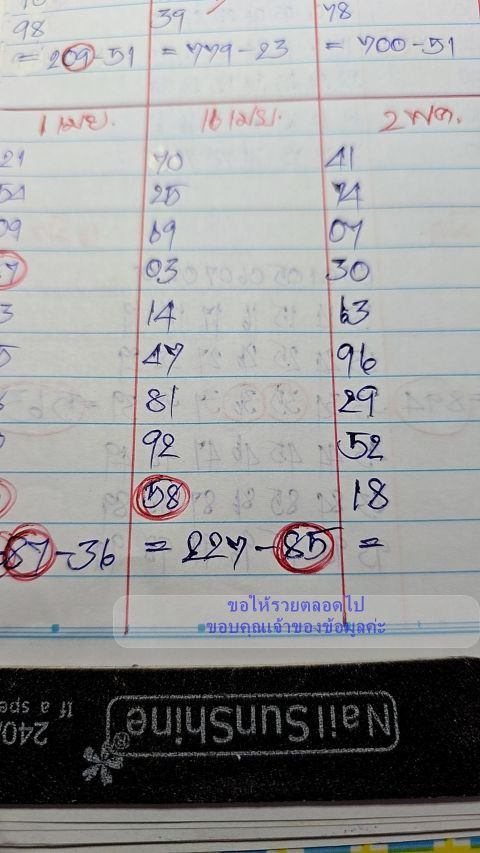 98 39 78
= 209-51 = 779-23 = 700-51
1 เมย. 16 เมย. 2 พค.
21 70 41
54 25 74
09 69 07
7 03 30
3 14 63
5 47 96
81 29
92 52
58 18
87-36 = 227-85 =
ขอให้รวยตลอดไป
ขอบคุณเจ้าของข้อมูลค่ะ
NailSunShine®
240
If a spe